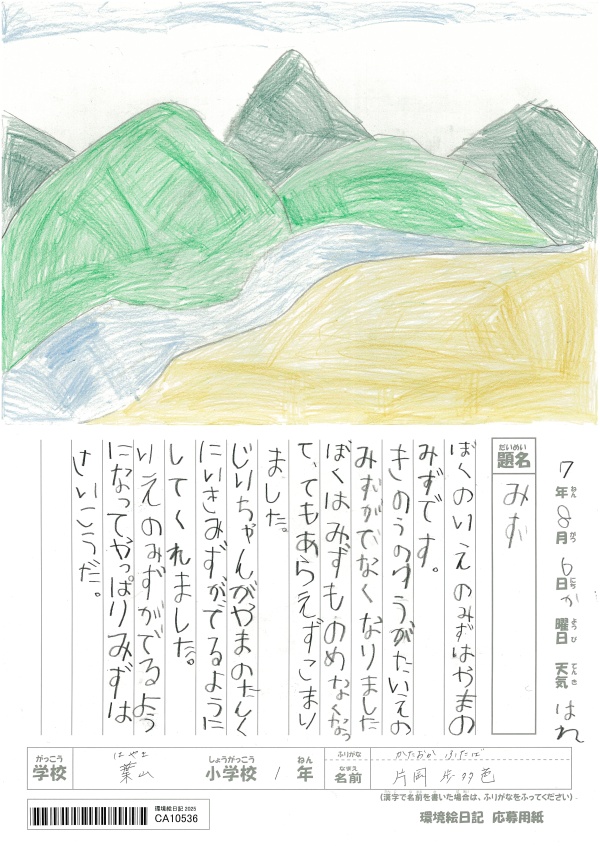 7年ねん8月がつ6日にちか曜日ようび天気てんきはれ
題名だいめい
みず
ぼくのいえのみずはやまの
みずです。
きのうのゆうがたいえの
みずがでなくなりました
ぼくはみずものめなくなっ
て、てもあらえずこまり
ました。
じいちゃんがやまのたんく
にいきみずがでるように
してくれました。
いえのみずがでるよう
になってやっぱりみずは
さいこうだ。
がっこう はやま しょうがっこう ねん
学校 葉山 小学校 1 年
ふりがな かたおか ふたば
なまえ
名前 片岡
(漢字で名前を書いた場合は、ふりがなをふってください)
環境絵日記 2025
CA10536
環境絵日記 応募用紙